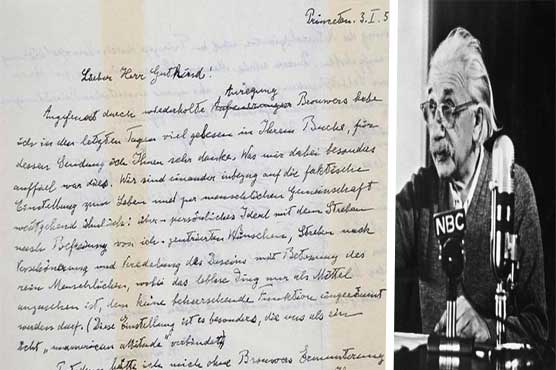 Princeton. 3. I. 5
Lieber Herr Gutkind!
Anregung
Angefeuert durch wiederholte Brouwers habe
ich in den letzten Tagen viel gelesen in Ihrem Buche, für
dessen Sendung ich Ihnen sehr danke. Was mir dabei besonders
auffiel war dies. Wir sind einander inbezug auf die faktische
Einstellung zum Leben und zur menschlichen Gemeinschaft
weitgehend ähnlich: über-persönliches Ideal mit dem Streben
nach Befreiung von ich-zentrierten Wünschen, Streben nach
Verschönerung und Veredelung des Daseins mit Betonung des
rein Menschlichen, wobei das leblose Ding nur als Mittel
anzusehen ist, dem keine beherrschende Funktion eingeräumt
werden darf. (Diese Einstellung ist es besonders, die uns als ein
echt "unamerican attitude" verbindet)
hätte ich mich ohne Brouwers Ermunterung
NBC